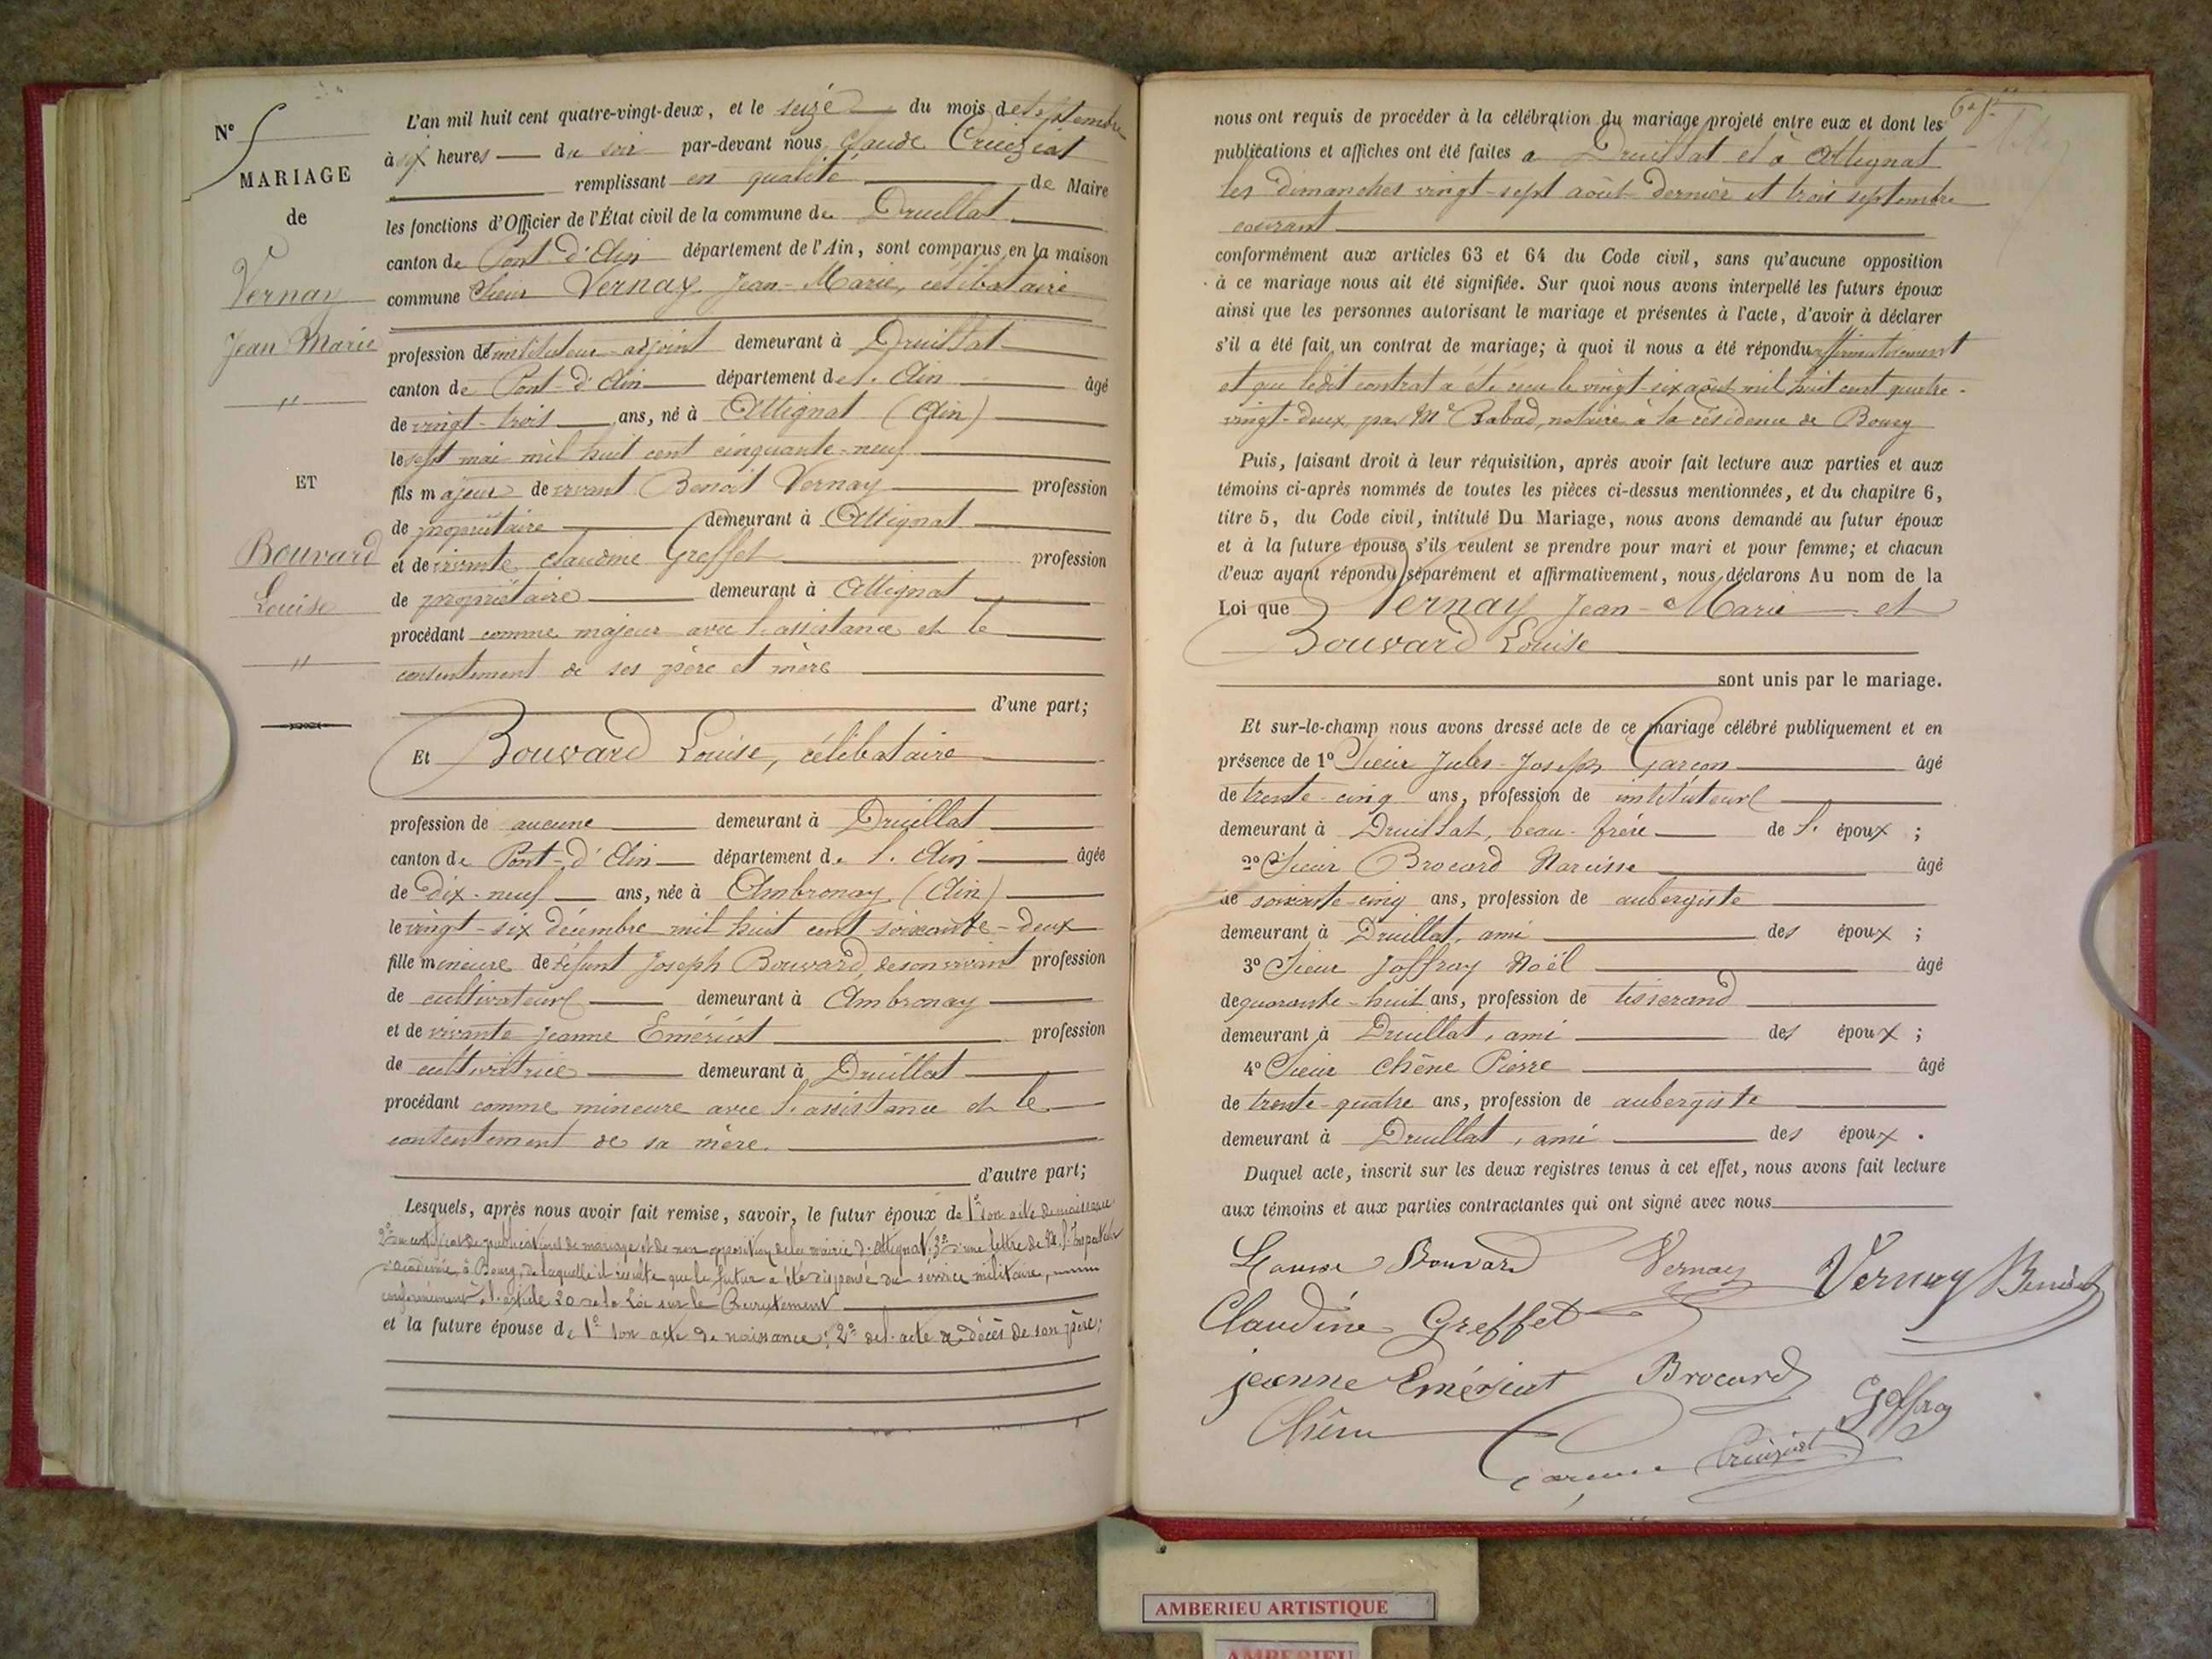 N° 5
MARIAGE
de
Vernay
Jean Marie
"
ET
Bouvard
Louise
"
L'an mil huit cent quatre-vingt-deux, et le seize du mois de septembre
à six heures du soir par-devant nous Claude Cruiziat
remplissant en qualité de Maire
les fonctions d'Officier de l'État civil de la commune de Druillat
canton de Pont-d'Ain département de l'Ain, sont comparus en la maison
commune Sieur Vernay Jean-Marie, célibataire
profession d'instituteur-adjoint demeurant à Druillat
canton de Pont-d'Ain département de l'Ain âgé
de vingt-trois ans, né à Attignat (Ain)
le sept mai mil huit cent cinquante-neuf
fils majeur de vivant Benoit Vernay profession
de propriétaire demeurant à Attignat
et de vivante Claudine Greffet profession
de propriétaire demeurant à Attignat
procédant comme majeur avec l'assistance et le
consentement de ses père et mère
d'une part;
Et Bouvard Louise, célibataire
profession de aucune demeurant à Druillat
canton de Pont-d'Ain département de l'Ain âgée
de dix-neuf ans, née à Ambronay (Ain)
le vingt-six décembre mil huit cent soixante-deux
fille mineure de défunt Joseph Bouvard, de son vivant profession
de cultivateur demeurant à Ambronay
et de vivante Jeanne Emériat profession
de cultivatrice demeurant à Druillat
procédant comme mineure avec l'assistance et le
consentement de sa mère.
d'autre part;
Lesquels, après nous avoir fait remise, savoir, le futur époux de 1° son acte de naissance
2° du certificat de publications de mariage et de non opposition de la mairie d'Attignat; 3° d'une lettre de M. l'Inspecteur
d'académie, à Bourg, de laquelle il résulte que le futur a été dispensé du service militaire,
conformément à l'article 20 de la Loi sur le Recrutement
et la future épouse de 1° son acte de naissance; 2° de l'acte de décès de son père;
nous ont requis de procéder à la célébration du mariage projeté entre eux et dont les
publications et affiches ont été faites à Druillat et à Attignat
les dimanches vingt-sept août dernier et trois septembre
courant
conformément aux articles 63 et 64 du Code civil, sans qu'aucune opposition
à ce mariage nous ait été signifiée. Sur quoi nous avons interpellé les futurs époux
ainsi que les personnes autorisant le mariage et présentes à l'acte, d'avoir à déclarer
s'il a été fait un contrat de mariage; à quoi il nous a été répondu affirmativement
et que ledit contrat a été reçu le vingt-six août mil huit cent quatre-
vingt-deux, par Me Rabad, notaire à la résidence de Bourg
Puis, faisant droit à leur réquisition, après avoir fait lecture aux parties et aux
témoins ci-après nommés de toutes les pièces ci-dessus mentionnées, et du chapitre 6,
titre 5, du Code civil, intitulé Du Mariage, nous avons demandé au futur époux
et à la future épouse s'ils veulent se prendre pour mari et pour femme; et chacun
d'eux ayant répondu séparément et affirmativement, nous déclarons Au nom de la
Loi que Vernay Jean-Marie et
Bouvard Louise
sont unis par le mariage.
Et sur-le-champ nous avons dressé acte de ce mariage célébré publiquement et en
présence de 1° Sieur Jules-Joseph Garçon âgé
de trente-cinq ans, profession de instituteur
demeurant à Druillat, beau-frère de l'époux ;
2° Sieur Brocard Narcisse âgé
de soixante-cinq ans, profession de aubergiste
demeurant à Druillat, ami des époux ;
3° Sieur Joffray Noël âgé
de quarante-huit ans, profession de tisserand
demeurant à Druillat, ami des époux ;
4° Sieur Chêne Pierre âgé
de trente-quatre ans, profession de aubergiste
demeurant à Druillat, ami des époux .
Duquel acte, inscrit sur les deux registres tenus à cet effet, nous avons fait lecture
aux témoins et aux parties contractantes qui ont signé avec nous
Louise Bouvard Vernay Vernay Benoit
Claudine Greffet
jeanne Emériat Brocard Geffray
Chêne
Garçon Cruiziat
AMBERIEU ARTISTIQUE
AMBERIEU